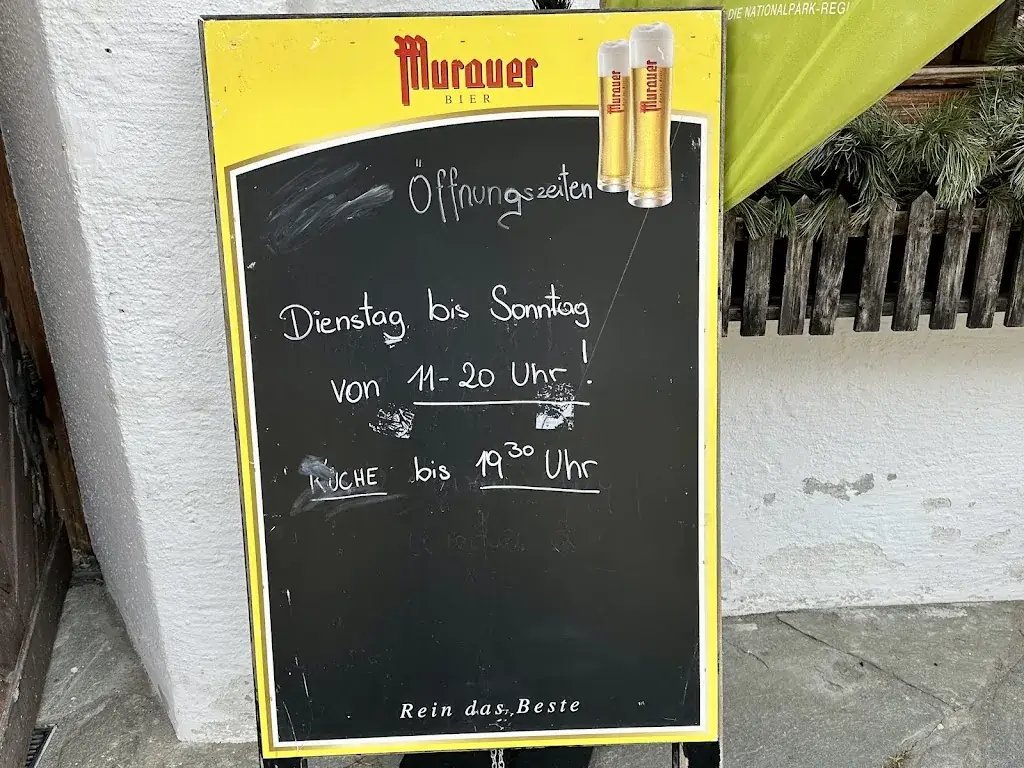 DIE NATIONALPARK-REGI
Murauer
BIER
Murauer
Murauer
Öffnungszeiten
Dienstag bis Sonntag
von 11-20 Uhr!
KÜCHE bis 19 30 Uhr
Rein das Beste